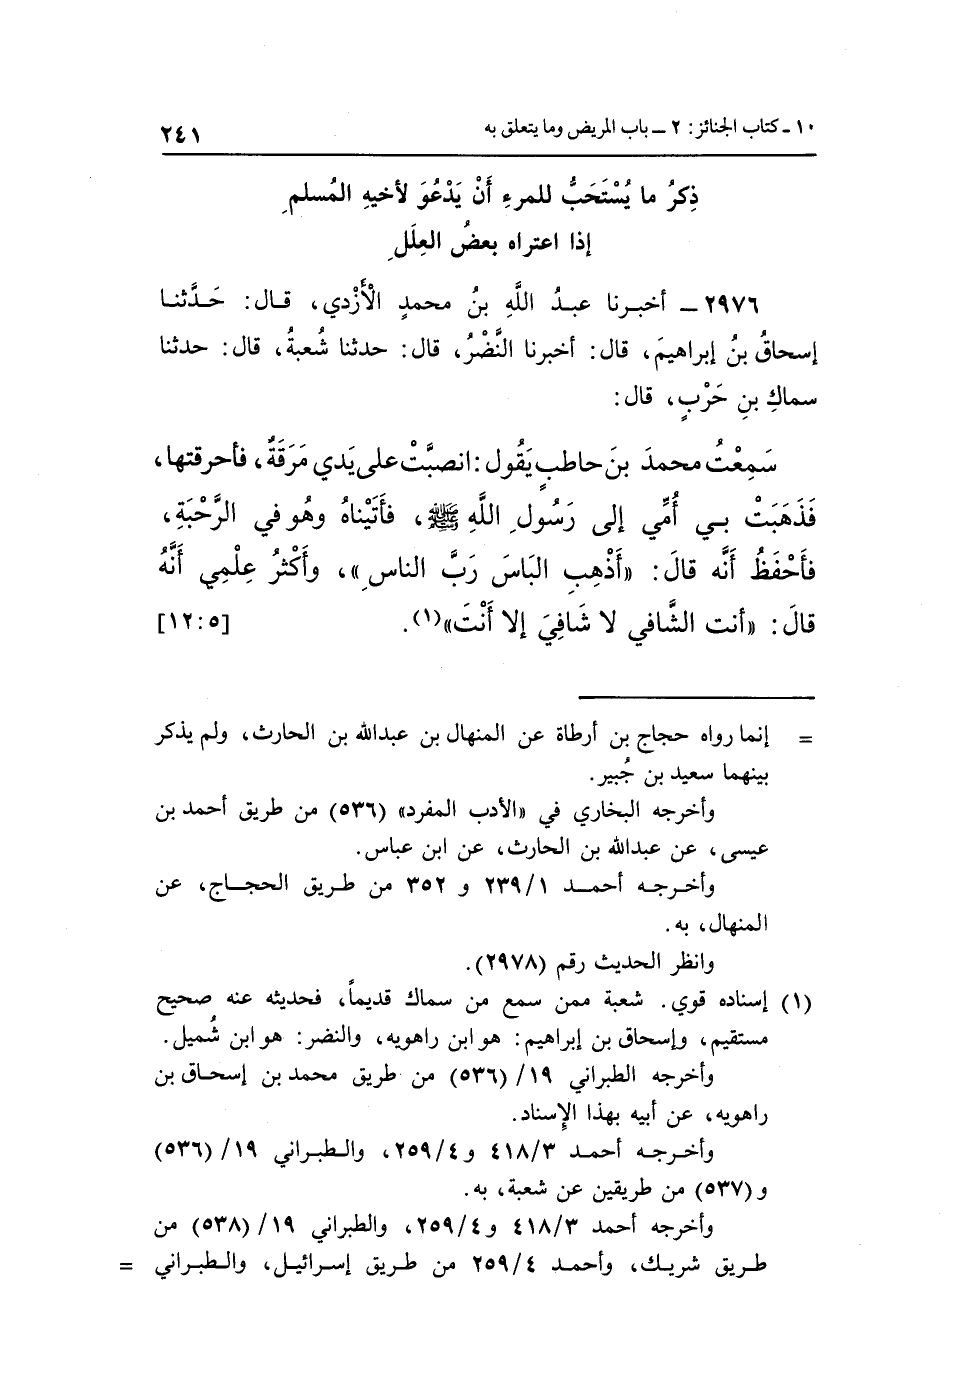 ١٠ ـ كتاب الجنائز: ٢ ـ باب المريض وما يتعلق به ٢٤١
ذِكرُ ما يُسْتَحَبُّ للمرءِ أَنْ يَدْعُوَ لأخيهِ المُسلمِ
إذا اعتراه بعضُ العِلَلِ
٢٩٧٦ ـ أخبرنا عبدُ اللَّهِ بنُ محمدٍ الْأَزْدي، قال: حَدَّثنا
إسحاقُ بنُ إبراهيمَ، قال: أخبرنا النَّضْرُ، قال: حدثنا شُعبةُ، قال: حدثنا
سماكِ بنِ حَرْبٍ، قال:
سَمِعْتُ محمدَ بنَ حاطبٍ يَقُول: انصبَّتْ على يَدي مَرَقَةٌ، فأحرقتها،
فَذَهَبَتْ بي أُمِّي إلى رَسُولِ اللَّهِ ﷺ، فأتَيْناهُ وهُو في الرَّحْبَةِ،
فأحْفَظُ أَنَّه قالَ: «أَذْهِبِ البَاسَ رَبَّ الناسِ»، وأَكْثرُ عِلْمِي أَنَّهُ
قالَ: «أنت الشَّافي لا شَافِيَ إلا أَنْتَ»(١). [١٢:٥]
= إنما رواه حجاج بن أرطاة عن المنهال بن عبدالله بن الحارث، ولم يذكر
بينهما سعيد بن جُبير.
وأخرجه البخاري في «الأدب المفرد» (٥٣٦) من طريق أحمد بن
عيسى، عن عبدالله بن الحارث، عن ابن عباس.
وأخرجه أحمد ٢٣٩/١ و ٣٥٢ من طريق الحجاج، عن
المنهال، به.
وانظر الحديث رقم (٢٩٧٨).
(١) إسناده قوي. شعبة ممن سمع من سماك قديماً، فحديثه عنه صحيح
مستقيم، وإسحاق بن إبراهيم: هو ابن راهويه، والنضر: هو ابن شُميل.
وأخرجه الطبراني ١٩/(٥٣٦) من طريق محمد بن إسحاق بن
راهويه، عن أبيه بهذا الإسناد.
وأخرجه أحمد ٤١٨/٣ و٢٥٩/٤، والطبراني ١٩/(٥٣٦)
و(٥٣٧) من طريقين عن شعبة، به.
وأخرجه أحمد ٤١٨/٣ و٢٥٩/٤، والطبراني ١٩/(٥٣٨) من
طريق شريك، وأحمد ٢٥٩/٤ من طريق إسرائيل، والطبراني =